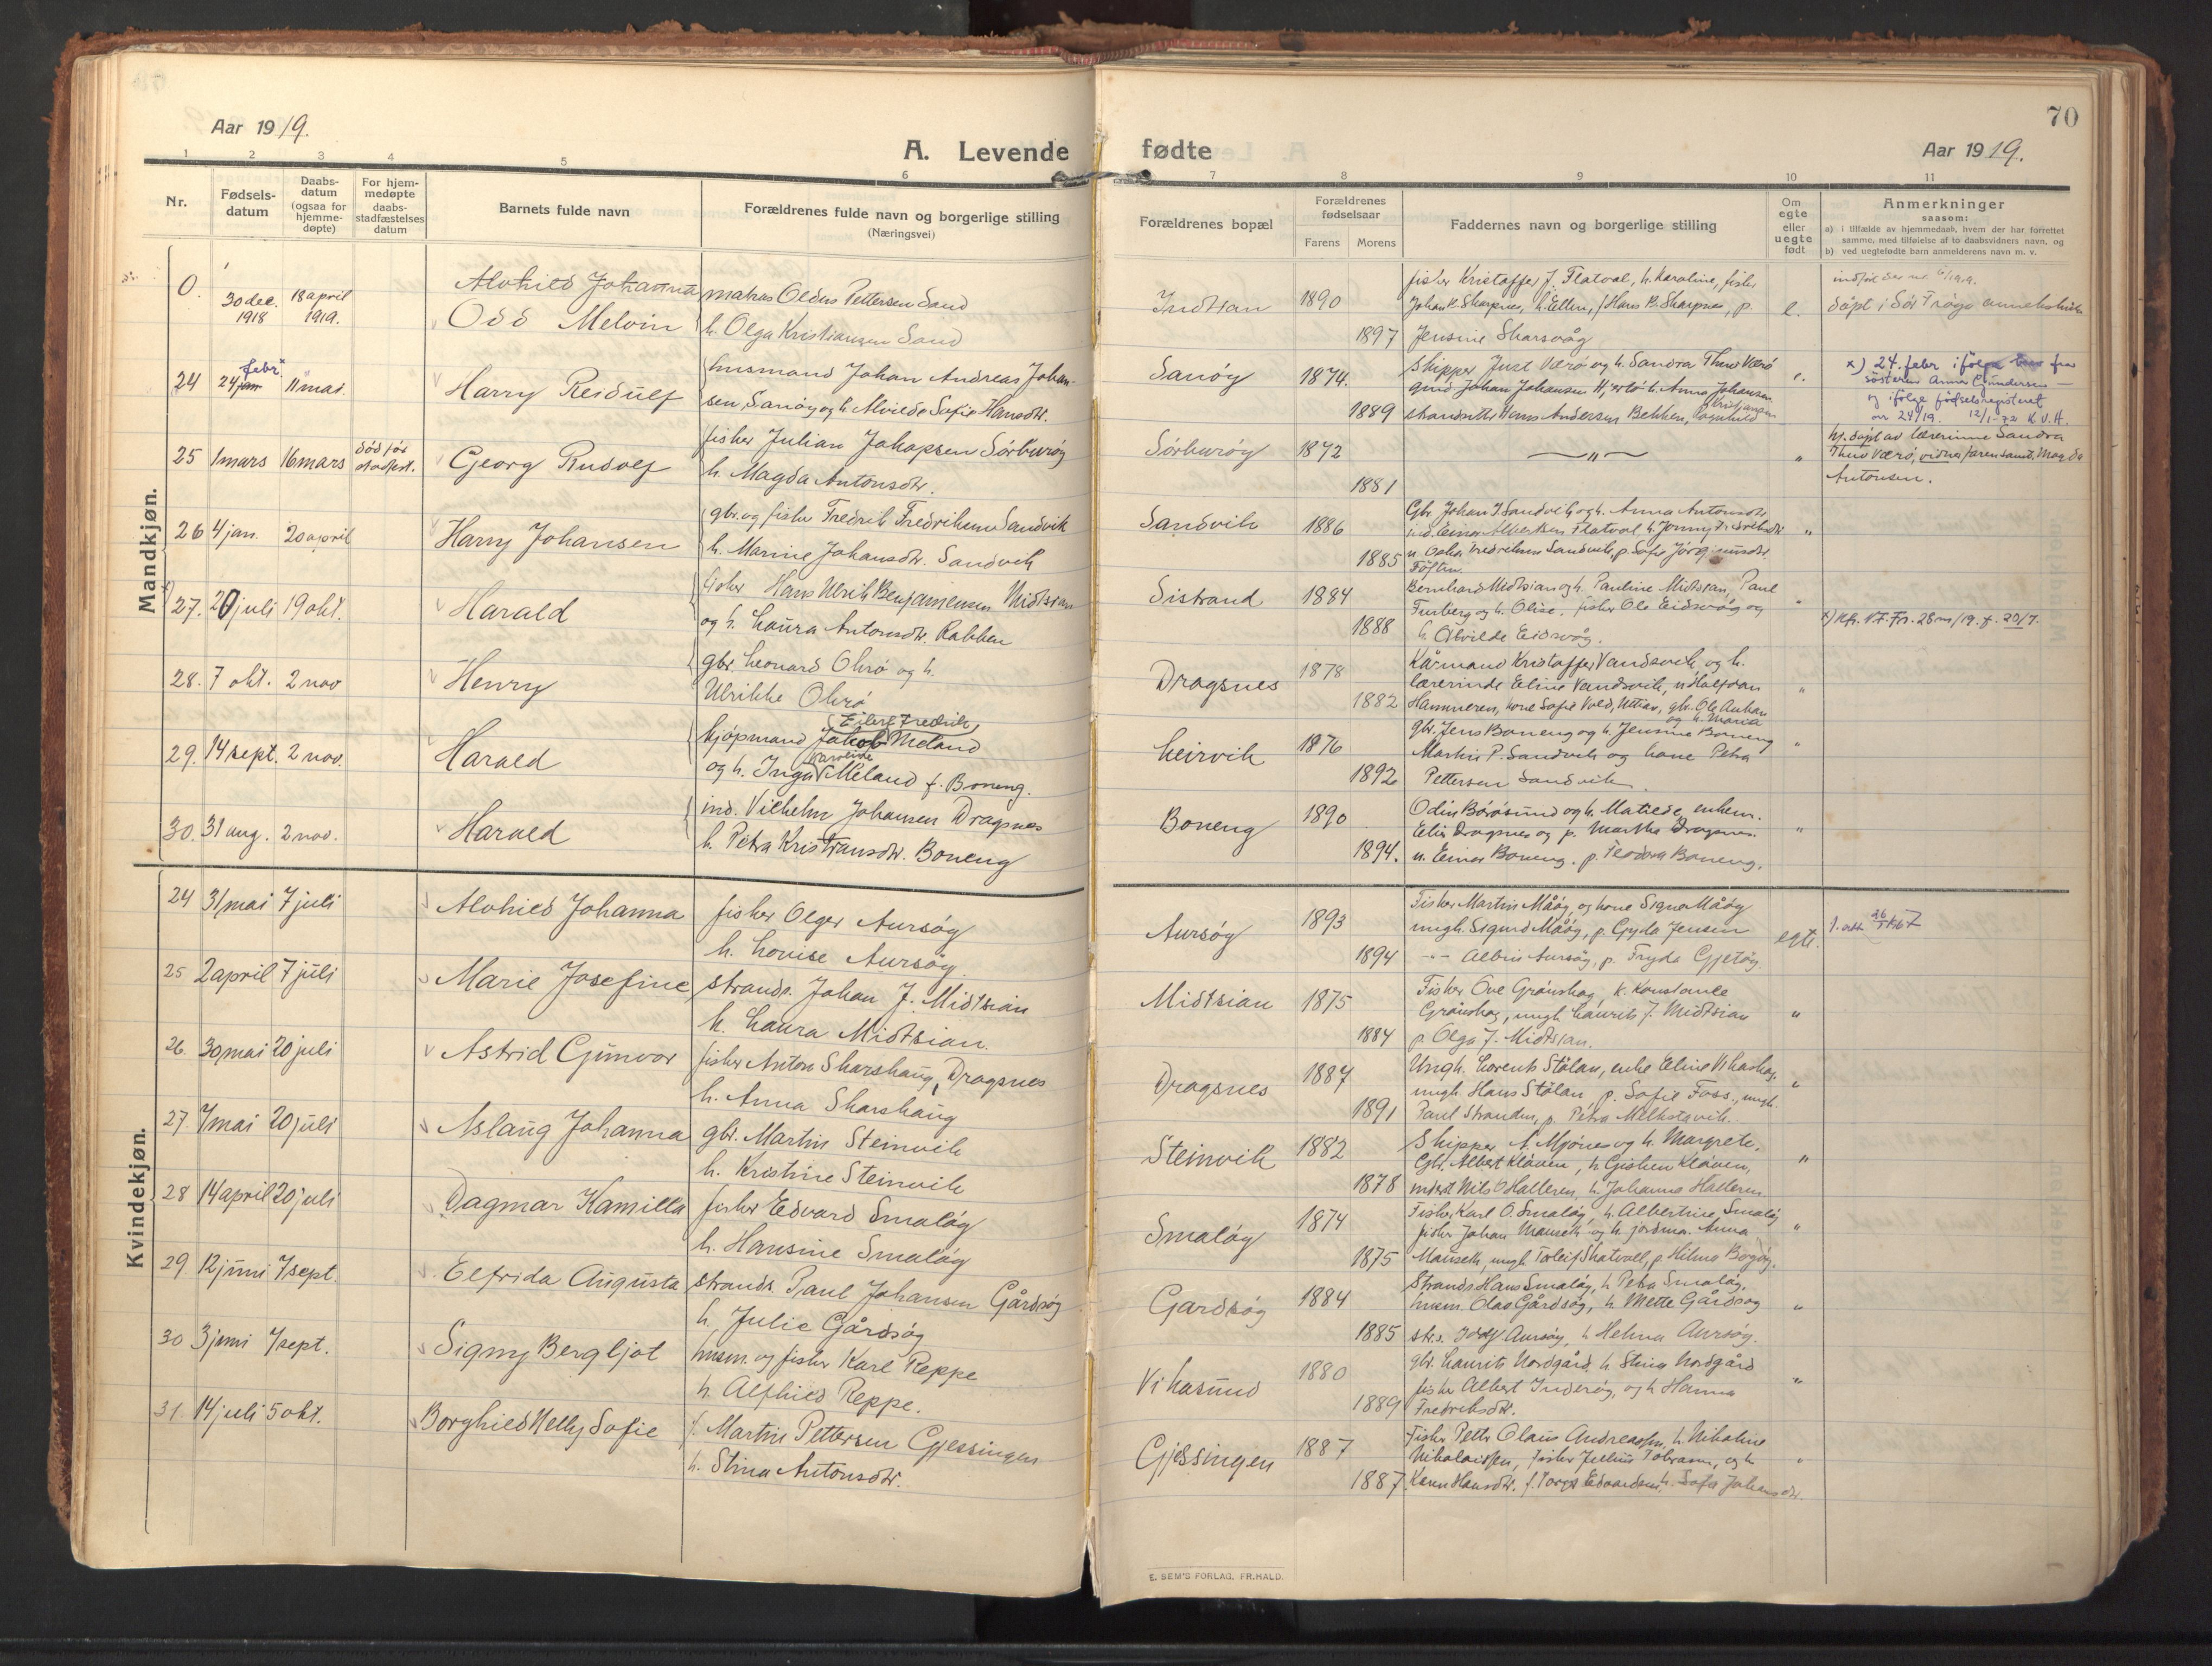 Aar 1919.
A. Levende
1 2 3 4 5 6
Nr.
Fødsels-
datum
Daabs-
datum
(ogsaa for
hjemme-
døpte)
For hjem-
medøpte
daabs-
stadfæstelses
datum
Barnets fulde navn
Forældrenes fulde navn og borgerlige stilling
(Næringsvei)
Mandkjøn.
0. 30 dec. 1918 18 april 1919.
Alvhild Johanna
Odd Melvin
matros Oldus Pettersen Sand
h. Olga Kristiansen Sand
24 24 jan febr.x 11 mai. Harry Reidulf
husmand Johan Andreas Johan-
sen, Sanøy og h. Alvilde Sofie Hansdtr.
25 1 mars 16 mars død før stadfest. Georg Rudolf
fisker Julian Johansen Sørburøy
h. Magda Antonsdtr.
26 4 jan. 20 april Harry Johansen
gbr. og fisker Fredrik Fredriksen Sandvik
h. Marine Johansdtr. Sandvik
27. 20 juli 19 okt. Harald
fisker Hans Ulrik Benjaminsen Midtsian
og h. Laura Antonsdtr. Rabben
28. 7 okt. 2 nov Henry
gbr. Leonard Ohrø og h.
Ulrikke Ohrø
29. 14 sept. 2 nov. Harald
Eilert Fredrik
kjøpmand Jakob Meland
Karoline
og h. Inga Meland f. Boneng.
30. 31 aug. 2 nov. Harald
ind. Vilhelm Johansen Dragsnes
h. Petra Kristiansdtr. Boneng
Kvindekjøn.
24 31 mai 7 juli Alvhild Johanna
fisker Olger Aursøy
h. Lovise Aursøy.
25 2 april 7 juli Marie Josefine
strands. Johan J. Midtsian
h. Laura Midtsian.
26. 30 mai 20 juli Astrid Gunvor
fisker Anton Skarshaug, Dragsnes
h. Anna Skarshaug
27. 7 mai 20 juli Aslaug Johanna
gbr. Martin Steinvik
h. Kristine Steinvik
28 14 april 20 juli Dagmar Kamilla
fisker Edvard Smaløy
h. Hansine Smaløy
29 12 juni 7 sept. Elfrida Augusta
strands. Paul Johansen Gårdsøy
h. Julie Gårdsøy
30 3 juni 7 sept. Signy Bergljot
husm. og fisker Karl Reppe
h. Alfhild Reppe.
31. 14 juli 5 okt. Borghild Nelly Sofie
f. Martin Pettersen Gjessingen
h. Stina Antonsdtr.
70
fødte
Aar 1919.
7 8 9 10 11
Forældrenes bopæl
Forældrenes
fødselsaar
Farens Morens
Faddernes navn og borgerlige stilling
Om
egte
eller
uegte
født
Anmerkninger
saasom:
a) i tilfælde av hjemmedaab, hvem der har forrettet
samme, med tilføielse af to daabsvidners navn, og
b) ved uegtefødte barn anmelderens navn m. v.
1890
1897
fisker Kristoffer J. Flatval, h. Karoline, fisker
Johan K. Skarpnes, h. Ellen, Hans B. Skarpnes, p.
Jensine Skarsvåg
e.
døpt i Sør Frøya annekskirke
Sanøy 1874.
1889
Skipper Just Værø og h. Sandra Theo Værø
gmd. Johan Johansen Hjertø h. Anna Johansen
strandsitter Hans Andersen Bekken, Ragnhild Kristiansen
e.
x) 24. febr ifølge fra
søsteren Anna Gundersen —
og ifølge fødselsregisteret
nr 24/19. 12/1-72 K.V.H.
Sørburøy 1872
1881
— " —
"
hj. døpt av lærerinne Sandra
Theo Værø, vidner faren samt Magda
Antonsen.
Sandvik 1886
1885
Gbr. Johan J Sandvik og h. Anna Antonsdtr.
ind. Einar Albertsen Flatval h. Jenny Fredriksdtr
u. Oskar Fredriksen Sandvik, p. Sofie Jørginusdtr.
"
Sistrand 1884
1888
Bernhard Midtsian og h. Pauline Midtsian, Paul
Furberg og h. Olise. fisker Ole Eidsvåg og
h. Alvilde Eidsvåg.
"
x) Kfr. 28 m/19. f. 20/7.
Dragsnes 1878
1882
Kårmand Kristoffer Vandsvik og h.
lærerinde Eline Vandsvik, u Halfdan
Hammeren, kone Sofie Vold, Uttian, gbr. Ole
og h. Maria
"
Leirvik 1876
1892
gbr. Jens Boneng og h. Jensine Boneng
Martin P. Sandvik og kone Petra
Pettersen Sandvik.
"
Boneng 1890
1894.
Odin Børøsund og h. Matilde, enkem.
Elias Dragsnes og p. Martha Dragsnes.
u. Einar Boneng. p. Teodora Boneng.
"
Aursøy 1893
1894
Fisker Martin Måøy og kone Signe Måøy
ungk. Sigurd Måøy, p. Gyda Jensen
- - Albin Aursøy, p. Fryda Gjetøy.
egte.
1. att 26/
Midtsian 1875
1884
Fisker Ove Grønskag, k. Konstance
Grønskag, ungk. Laurits J. Midtsian
p. Olga J. Midtsian.
"
Dragsnes 1887
1891
Ungk. Lorents Stølan, enke Eline Vikaskag.
ungk Hans Stølan, p. Sofie Foss, ungk.
Paul Stranden, p. Petra Melkstavik.
"
Steinvik 1882
1878
Skipper A. Mjønes og h. Margrete.
Gbr. Albert Kløven, h Gjisken Kløven,
Nils O Halleren, h. Johanna Halleren.
"
Smaløy 1874
1875
Fisker Karl O. Smaløy, h. Albertine Smaløy
fisker Johan Mauseth og h. jordm. Anna
Mauseth, ungk Toleif Skatvoll, p Hilma Borgøy.
"
Gardsøy 1884
1885
Strands Hans Smaløy, h Petra Smaløy.
husm. Olaf Gårdsøy, h Mette Gårdsøy
Aursøy, h Helma Aursøy.
"
Vikasund 1880
1889
gbr. Laurits Nordgård, h Stina Nordgård
fisker Albert Inderøy, og h Hanna
Fredriksdtr.
"
Gjessingen 1887
1887
Fisker Petter Olaus Andreassen, h Nikoline
Nikolaisen, fisker Julius og h
Karen Hansdtr. f. Torger Edvardsen, h. Sofie Johansdtr.
"
E. SEM'S FORLAG, FR.HALD.